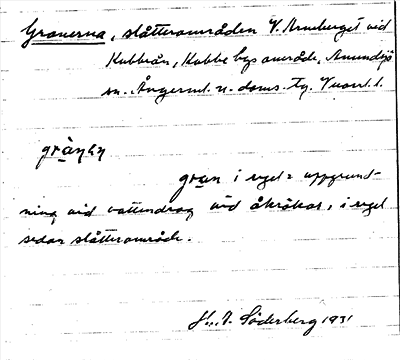 Granerna, slåtterområden V. Arneberget vid
Kubbeån, Kubbe bys område, Anundsjö
sn. Ångerml. n. doms. tg. Vuorl.
gràṇen
gran i regel = uppgrund-
ning vid vattendrag vid åkrökar, i regel
sedan slåtterområde.
H. Söderberg 1931